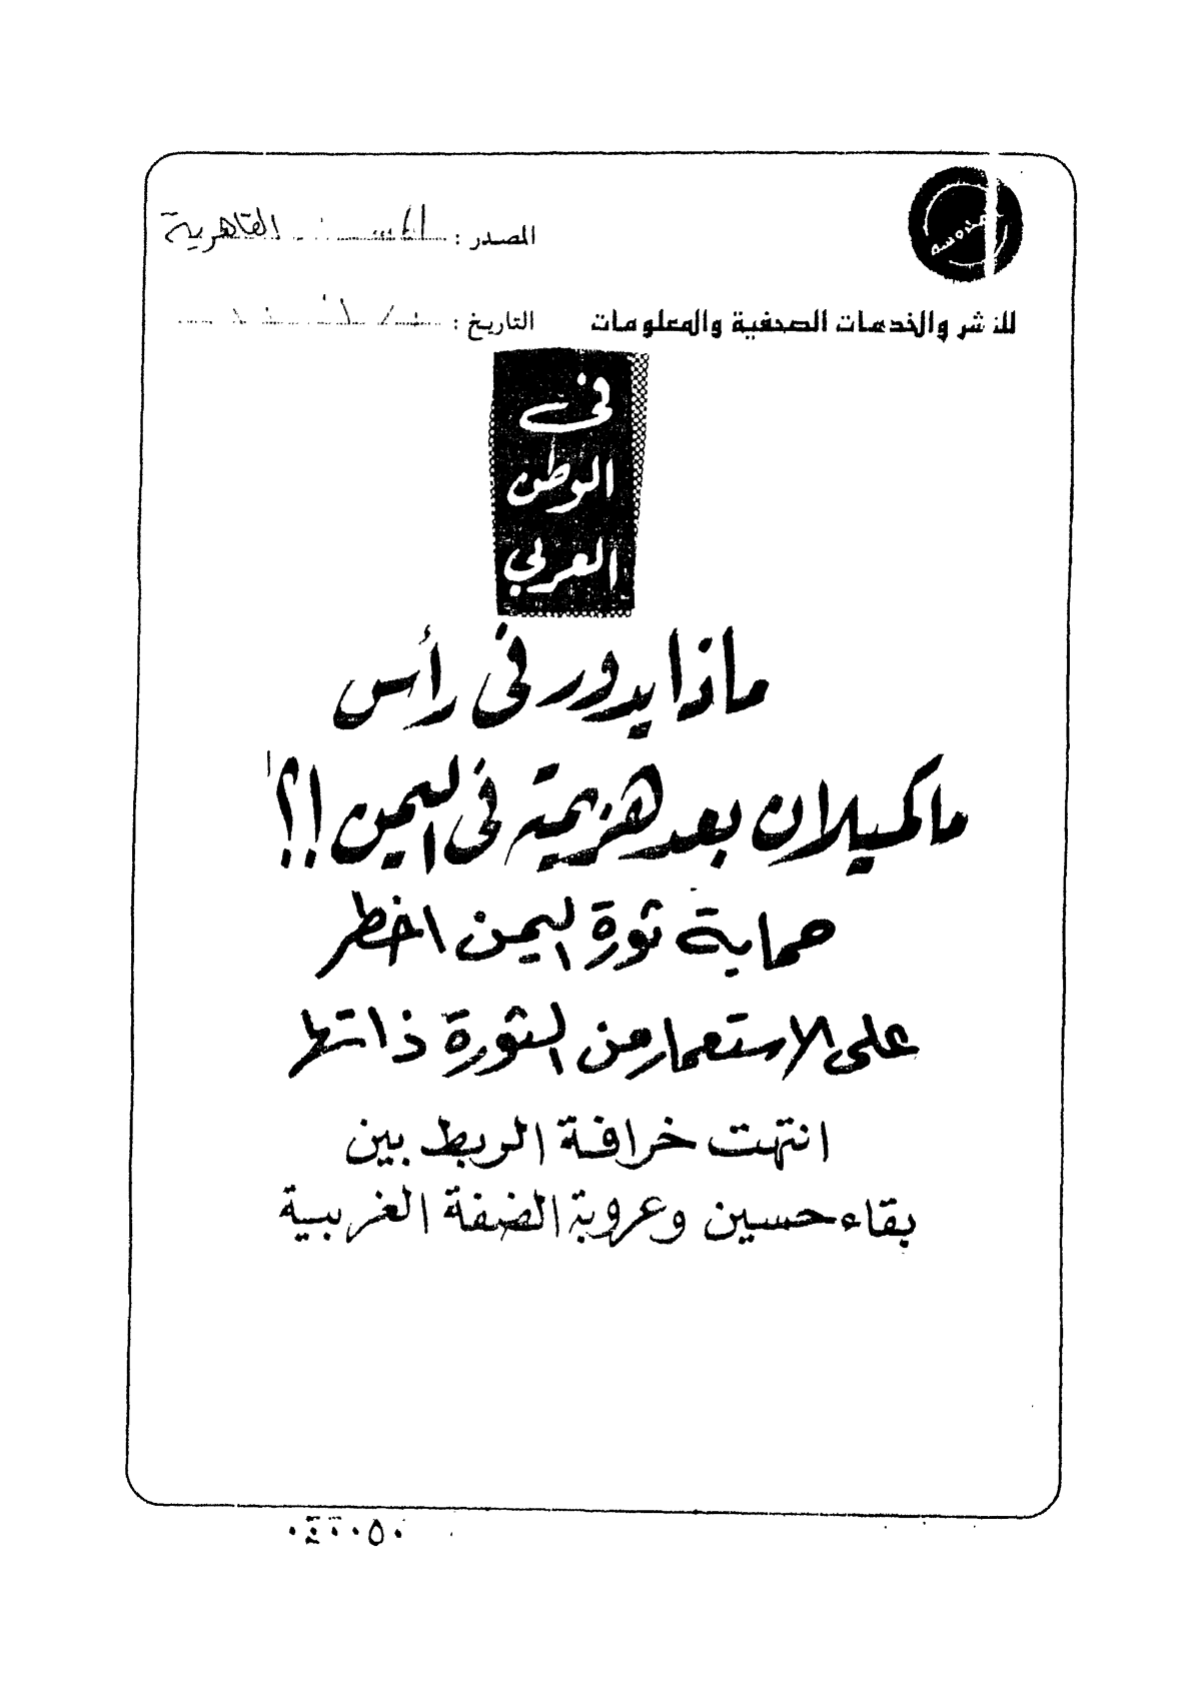 المصدر : القاهرية
للنشر والخدمات الصحفية والمعلومات
التاريخ :
فى
الوطن
العربي
ماذا يدور فى رأس
ماكميلان بعد هزيمته فى اليمن !؟
حماية ثورة اليمن اخطر
على الاستعمار من الثورة ذاتها
انتهت خرافة الربط بين
بقاء حسين وعروبة الضفة الغربية